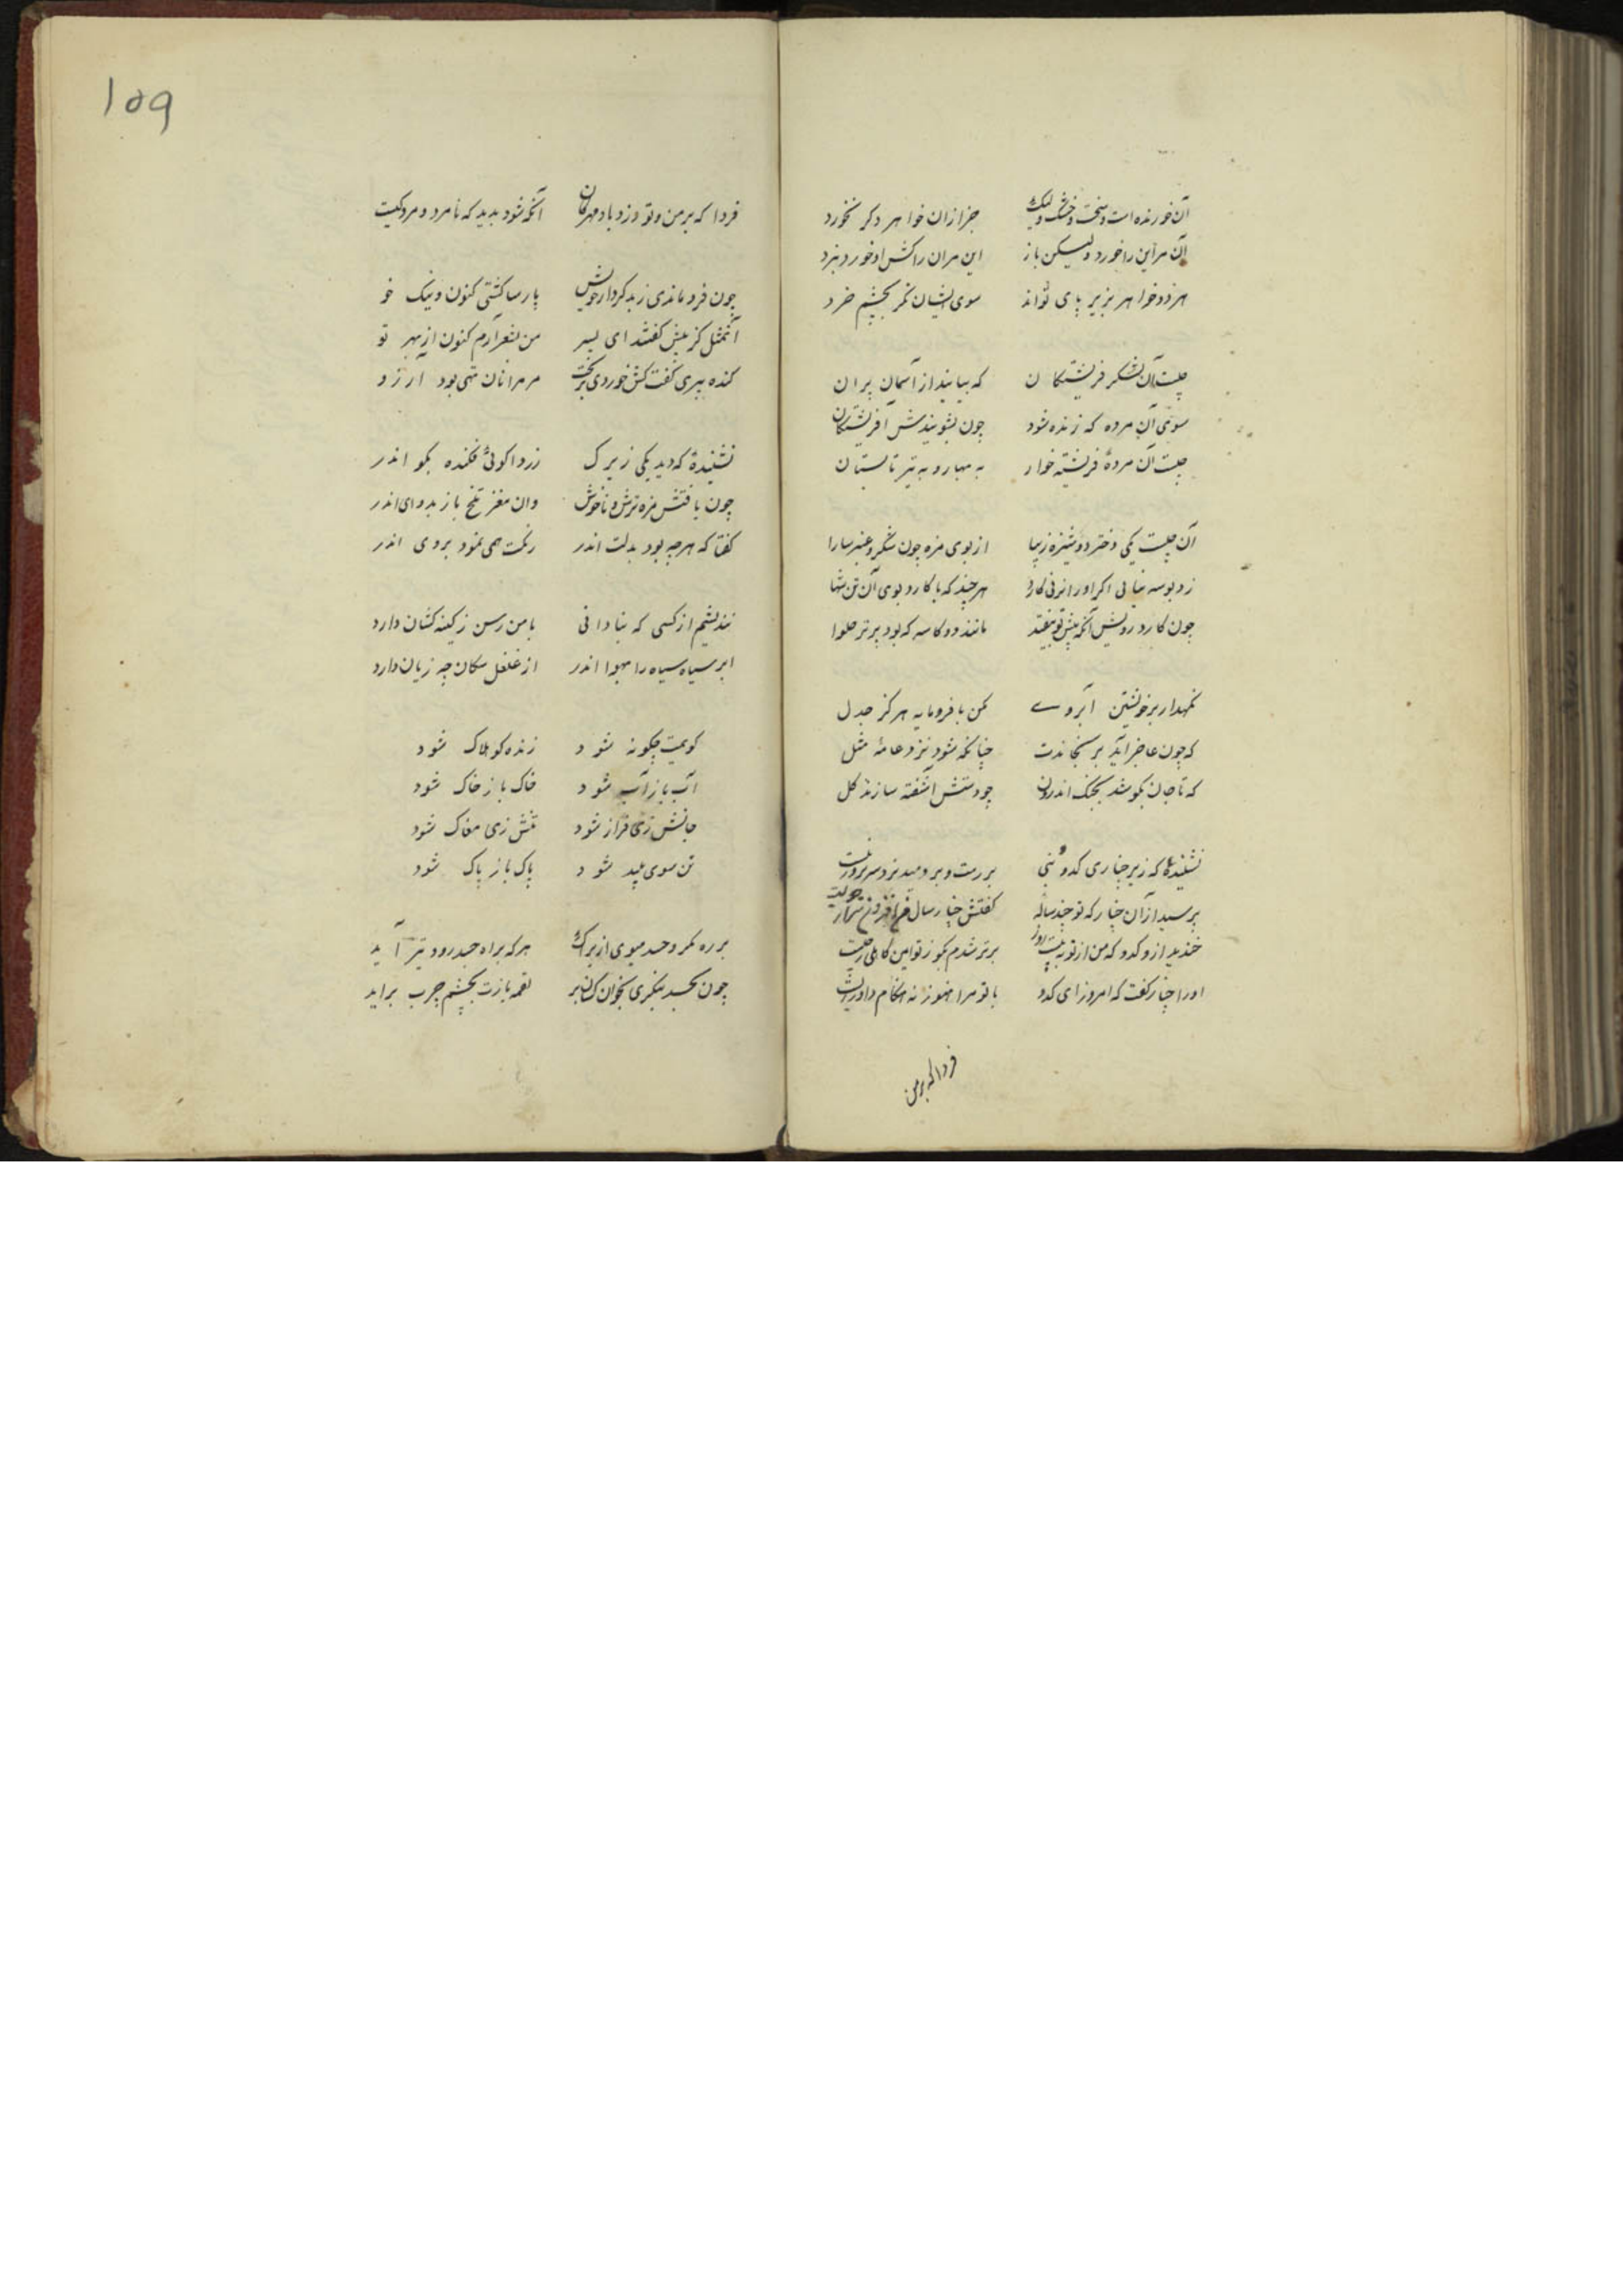 آن خورنده است و سخت و خشک ولیک جز ازان خواهر دکر نخورد
آن مر این را خورد ولیکن باز این مران را کش او خورد نبرد
هر دو خواهر بزیر پای تواند سوی ایشان نکر بچشم خرد
چیست آن لشکر فریشتکان که بیایند از آسمان پران
سوی آن مرده که زنده شود چون بشویندش آفریشتکان
چیست آن مردهٔ فرشته خوار به بهار و به تیر تابستان
آن چیست یکی دختر دوشیزه زیبا از بوی مزه چون شکر و عنبر سارا
زو بوسه نیابی اکر او را نزنی کارد هر چند که با کارد بوی آن تن تنها
چون کارد زدیش آنکه پیش تو بیفتد مانند دو کاسه که بود پر تر حلوا
نکهدار بر خویشتن آبروے مکن با فرومایه هرکز جدل
که چون عاجز آید برنجاندت چنانکه شود نزد عامه مثل
که تا جان بکوشد بجنک اندرون چو دستش آشفته سازند کل
نشنیدهٔ که زیر چناری کدو بنی بررست و بر دوید برو بر بروز بیست
پرسید ازان چنار که تو چند ساله کفتش چنار سال مرا
خندید ازو کدو که من از تو به بیست روز برتر شدم بکو ز تو این کاهلی ز چیست
او را چنار کفت که امروز ای کدو با تو مرا هنوز نه هنکام داوریست
فردا که بر من
۱۵۹
فردا که بر من و تو وزد باد مهرکان آنکه شود بدید که نامرد و مرد کیست
چون فرو ماندی ز بد کردار خویش پارسا کشتی کنون و نیک خو
آنمثل کز پیش کفتند ای پسر من بشعر آرم کنون از بهر تو
کنده پیری کفت کش خوردی بریخت مر مرا نان تهی بود آرزو
نشنیدهٔ که دید یکی زیرک زردآلوئی فکنده بکو اندر
چون یافتش مزه ترش و ناخوش وان مغز تلخ باز بدو ای اندر
کفتا که هر چه بود بدلت اندر رنکت همی نمود بروی اندر
نندیشم از کسی که بنادانی با من رسن ز کینه کشان دارد
ابر سیاه سیاه را بهوا اندر از غلغل سکان چه زیان دارد
کویمت چکونه شود زنده کو هلاک شود
آب باز آب شود خاک باز خاک شود
جانش زی فراز شود تنش زی مغاک شود
تن سوی پلید شود پاک باز پاک شود
بر ره مکر و حسد مپوی ازیراک هر که براه حسد رود بتر آید
چون بحسد بنکری بخوان کسان بر لقمه یارت بچشم چرب برآید